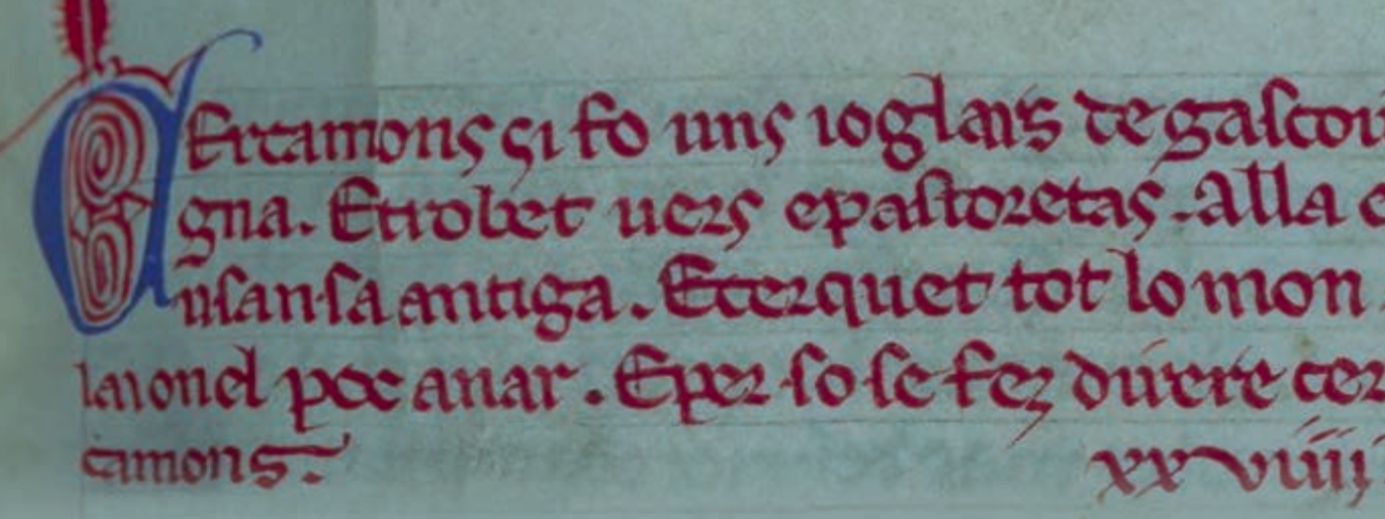 CErcamons si fo uns ioglars de gascoi
gna. Etrobet uers epastoretas. Alla
usansa antiga. Ecerquet tot lo mon
laionel poc anar. Eper so se fez diire cer
camons.
xxviiij